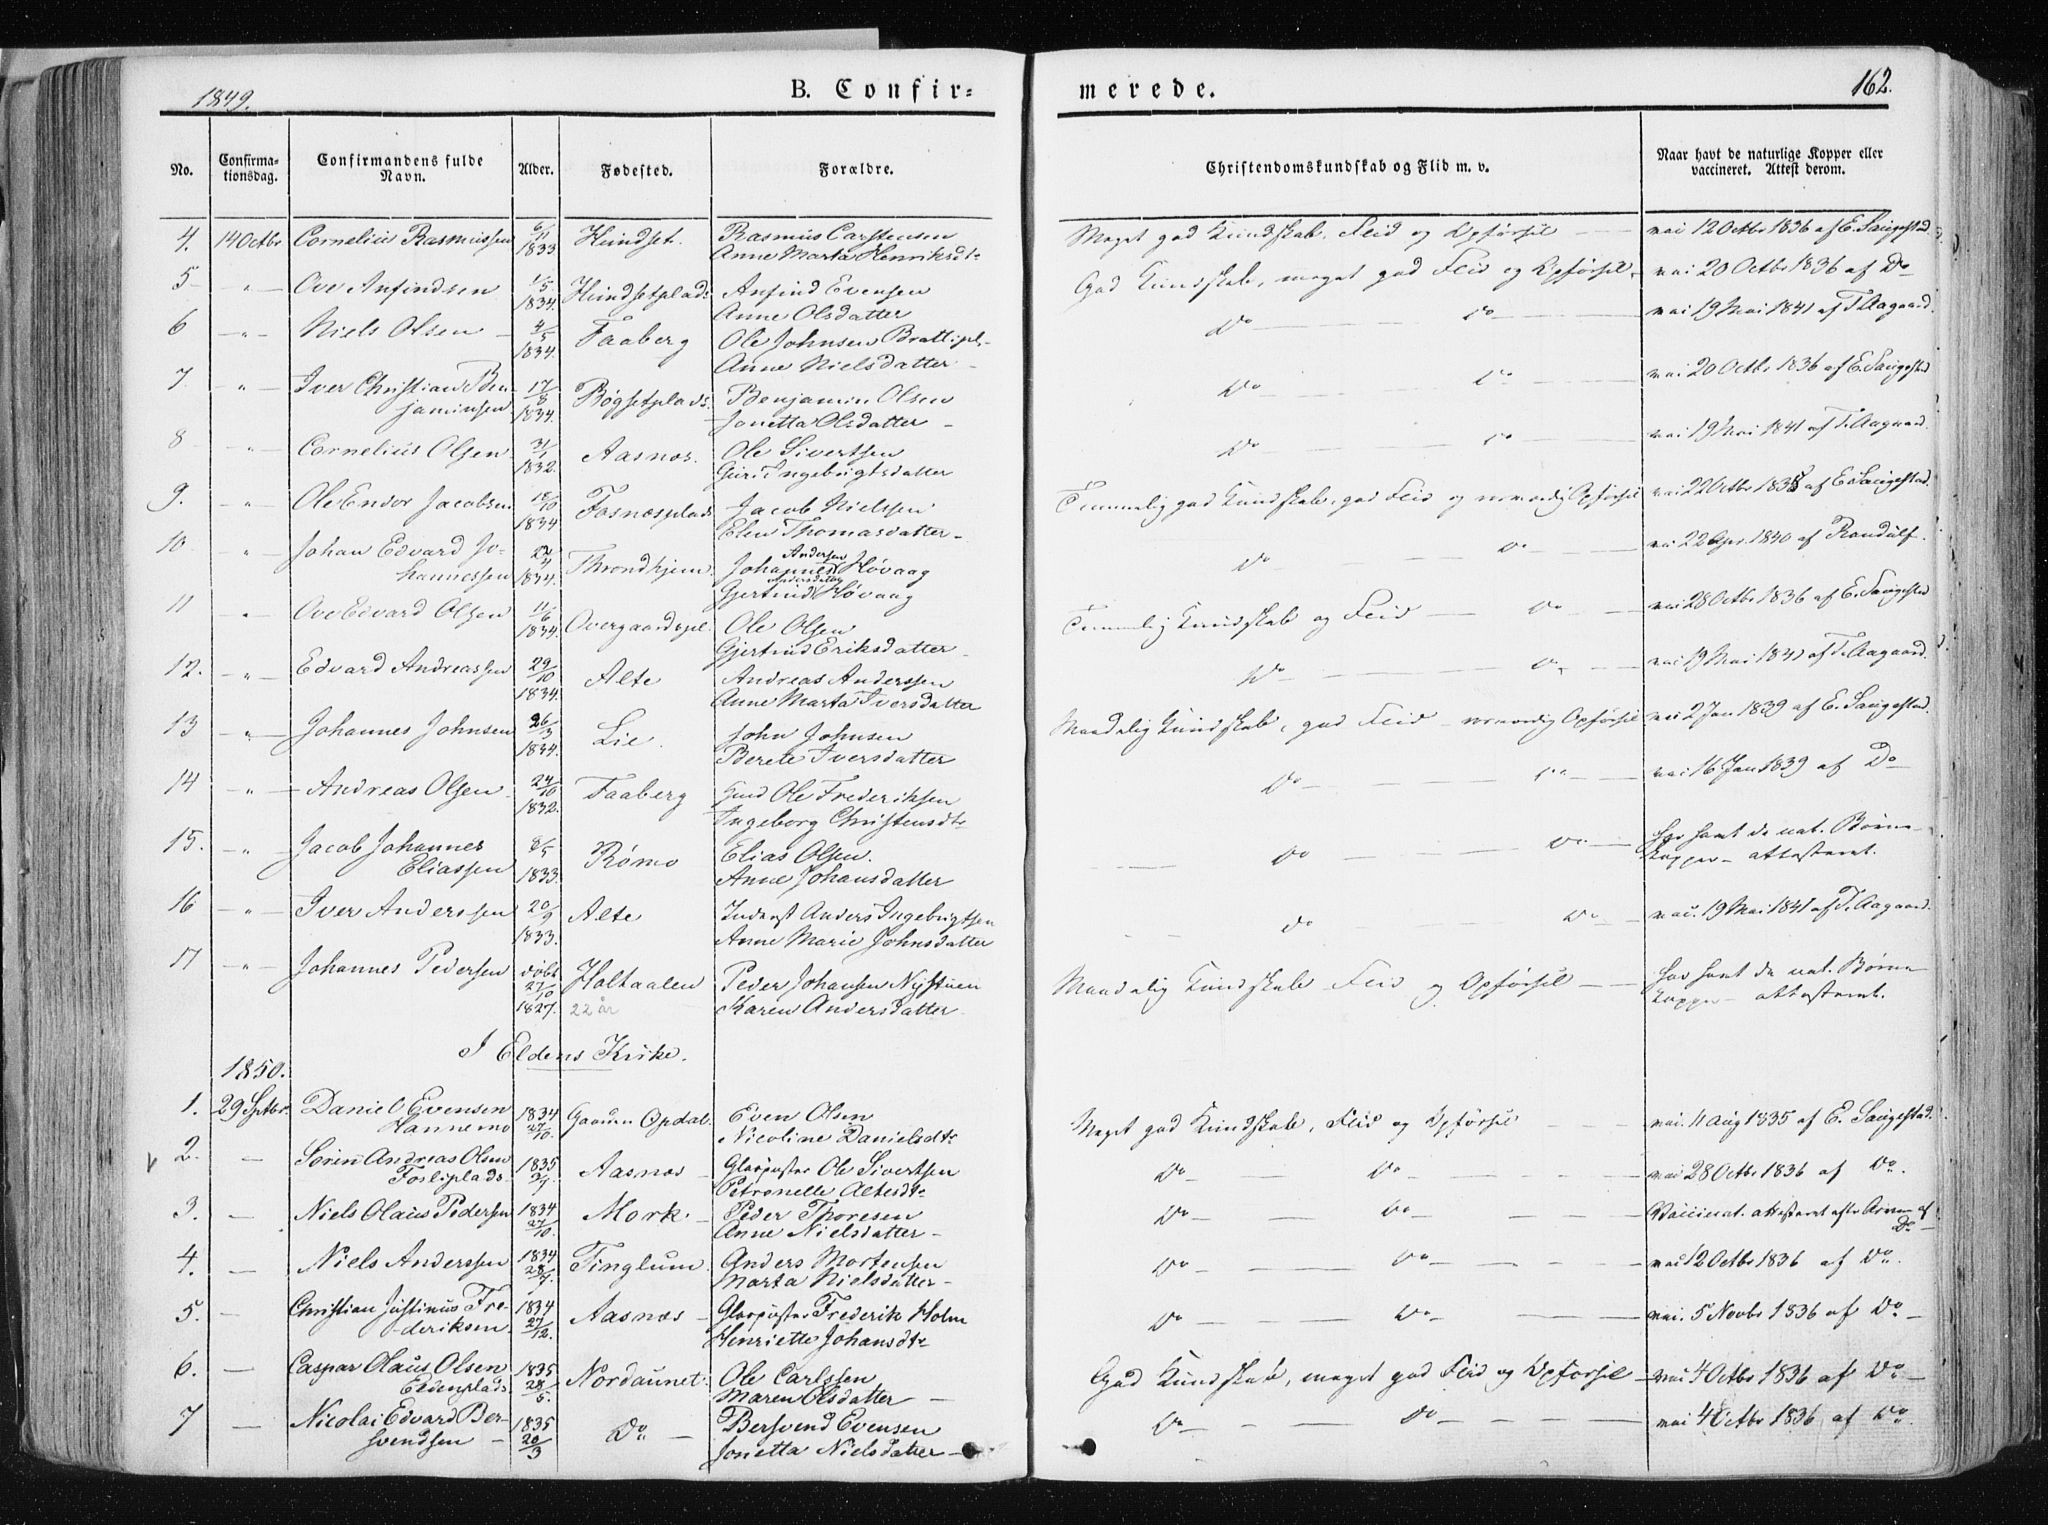 1849.
B. Confir=
merede.
162.
No.
Confirma-
tionsdag.
Confirmandens fulde
Navn.
Alder.
Fødested.
Forældre.
Christendomskundskab og Flid m. v.
Naar havt de naturlige Kopper eller
vaccineret. Attest derom.
4. 14 Octbr Cornelius Rasmussen 6/11 1833 Heindset. Rasmus Carstensen
Anne Marta Henriksdtr
Meget god Kundskab, Flid og Opførsel — vac. 12 Octbr 1836 af E. Saugestad.
5 — " — Ove Anfindsen 1/5 1834. Heindsetplads Anfind Evensen
Anne Olsdatter
God Kundskab, meget god Flid og Opførsel — vac 20 Octbr 1836 af Do
6 — " — Niels Olsen — 4/5 1834. Faaberg Ole Johnsen Brattipl.
Anne Nielsdatter —
Do — Do — vac 19 Mai 1841 af T. Aagaard.
7. — " — Iver Christian Ben-
jaminsen 17/8 1834. Bøgsetplads. Benjamin Olsen
Jonetta Olsdatter —
Do — Do — vac 20 Octbr 1836 af E. Saugestad
8 — " — Cornelius Olsen 31/1 1832. Aasnæs. Ole Sivertsen
Guri Ingebrigtsdatter
Do — Do — vac 19 Mai 1841 af T. Aagaard.
9. " Ole Endor Jacobsen 18/10 1834 Fosnæsplads Jacob Nielsen
Elen Thomasdatter —
Temmelig god Kundskab, god Flid og sædvanlig Opførsel vac 22 Octbr 1835 af E. Saugestad.
10 — " — Johan Edvard Jo-
hannessen 22/4 1834. Throndhjem. Johannes Andersen Høvaag
Gjertrud Andersdatter Høvaag
Do — Do — vac 22 Apr. 1840 af Randulf.
11 " Ove Edvard Olsen 11/6 1834. Overgaardspl. Ole Olsen
Gjertrud Eriksdatter —
Temmelig Kundskab og Flid — Do — vac 28 Octbr 1836 af E. Saugestad
12. — " — Edvard Andreassen 29/10 1834. Alte Andreas Anderssen
Anne Marta Iversdatter
Do — Do — vac 19 Mai 1841 af T. Aagaard.
13 — " — Johannes Johnsen 26/3 1834. Lie. John Johnsen
Berete Iversdatter
Maadelig Kundskab, god Flid — sædvanlig Opførsel vac 2 Jan 1839 af E. Saugestad.
14 — " — Andreas Olsen 24/10 1832. Faaberg Gmd Ole Frederiksen
Ingeborg Christensdtr
Do — Do — vac 16 Jan 1839 af Do
15. — " — Jacob Johannes
Eliassen 8/5 1833. Rømo Elias Olsen.
Anne Johansdatter
Do — Do — Har havt de nat. Børne-
kopper — attesteret.
16 — " — Iver Anderssen 20/9 1833. Alte Inderst Anders Ingebrigtsen
Anne Marie Johnsdatter
Do — Do — vac. 19 Mai 1841 af T. Aagaard.
17 — " — Johannes Pedersen døbt 27/10 1827. Holtaalen 22 år Peder Johansen Nystuen
Karen Andersdatter
Maadelig Kundskab Flid og Opførsel — Har havt de nat. Børne
kopper — attesteret.
I Eldens Kirke.
1850.
1. 29 Septbr. Daniel Evensen
Hannemo 1834 27/10. Gaarden Opdal. Even Olsen
Nicoline Danielsdtr
Meget god Kundskab, Flid og Opførsel — vac. 11 Aug 1835 af E. Saugestad.
v 2. — Søren Andreas Olsen
Fosliplads. 1835 3/1 Aasnæs — Glaspuster Ole Sivertsen
Petronelle Altesdtr
Do — Do — vac 28 Octbr 1836 af Do.
3. — Niels Olaus Pedersen 1834 27/10. Mork — Peder Thoresen
Anne Nielsdatter —
Do — Do — Vaccinert. attesteret efter Arrene af
Do —
4. — Niels Anderssen 1834 28/7. Tinglum. Anders Mortensen
Marta Nielsdatter —
Do — Do — vac 12 Octbr 1836 af Do.
5. — Christian Justinus Fre-
deriksen. 1834 27/12. Aasnæs — Glaspuster Frederik Holm
Henriette Johansdtr
Do — Do — vac. 5 Novbr 1836 af Do —
6. — Caspar Olaus Olsen
Eldenplads 1835 28/5. Nordaunet. Ole Carlssen
Maren Olsdatter —
God Kundskab, meget god Flid og Opførsel — vac 4 Octbr 1836 af Do —
7 — Nicolai Edvard Ber-
svendsen — 1835 20/3 Do — Bersvend Evensen
Jonetta Nielsdatter —
Do — Do — vac 4 Octbr 1836 af Do.